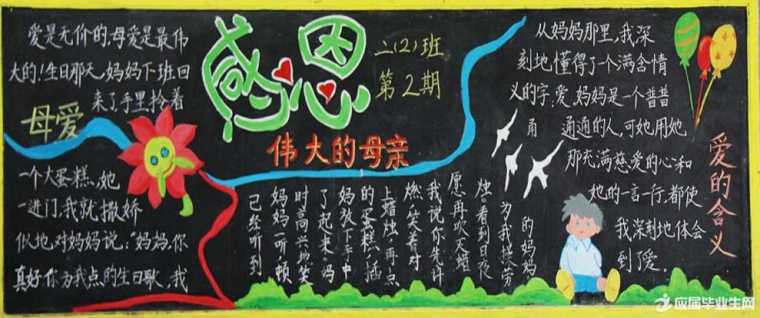 感恩
二(2)班
第2期
伟大的母亲
母爱
爱是无价的,母爱是最伟
大的!生日那天,妈妈下班回
来了手里拎着
一个大蛋糕,她
一进门,我就撒娇
似地对妈妈说:"妈妈,你
真好!你为我点的生日歌,我
已经听到
妈妈一听,顿
时高兴地笑
了起来。妈
妈放下手中
的蛋糕,插
上蜡烛,再点
燃,笑着对
我说你先许
愿再吹灭蜡
烛。看到日夜
为我操劳
的妈妈
爱的含义
从妈妈那里,我深
刻地懂得了一个满含情
义的字:爱,妈妈是一个普普
通通的人,可她用她
那充满慈爱的心和
她的一言一行,都使
我深刻地体会
到了爱。
应届毕业生网